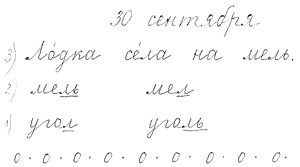 30 сентября
3) Ло́дка се́ла на мель.
2) мель мел
1) угол уголь
о. о. о. о. о. о. о. о. о.